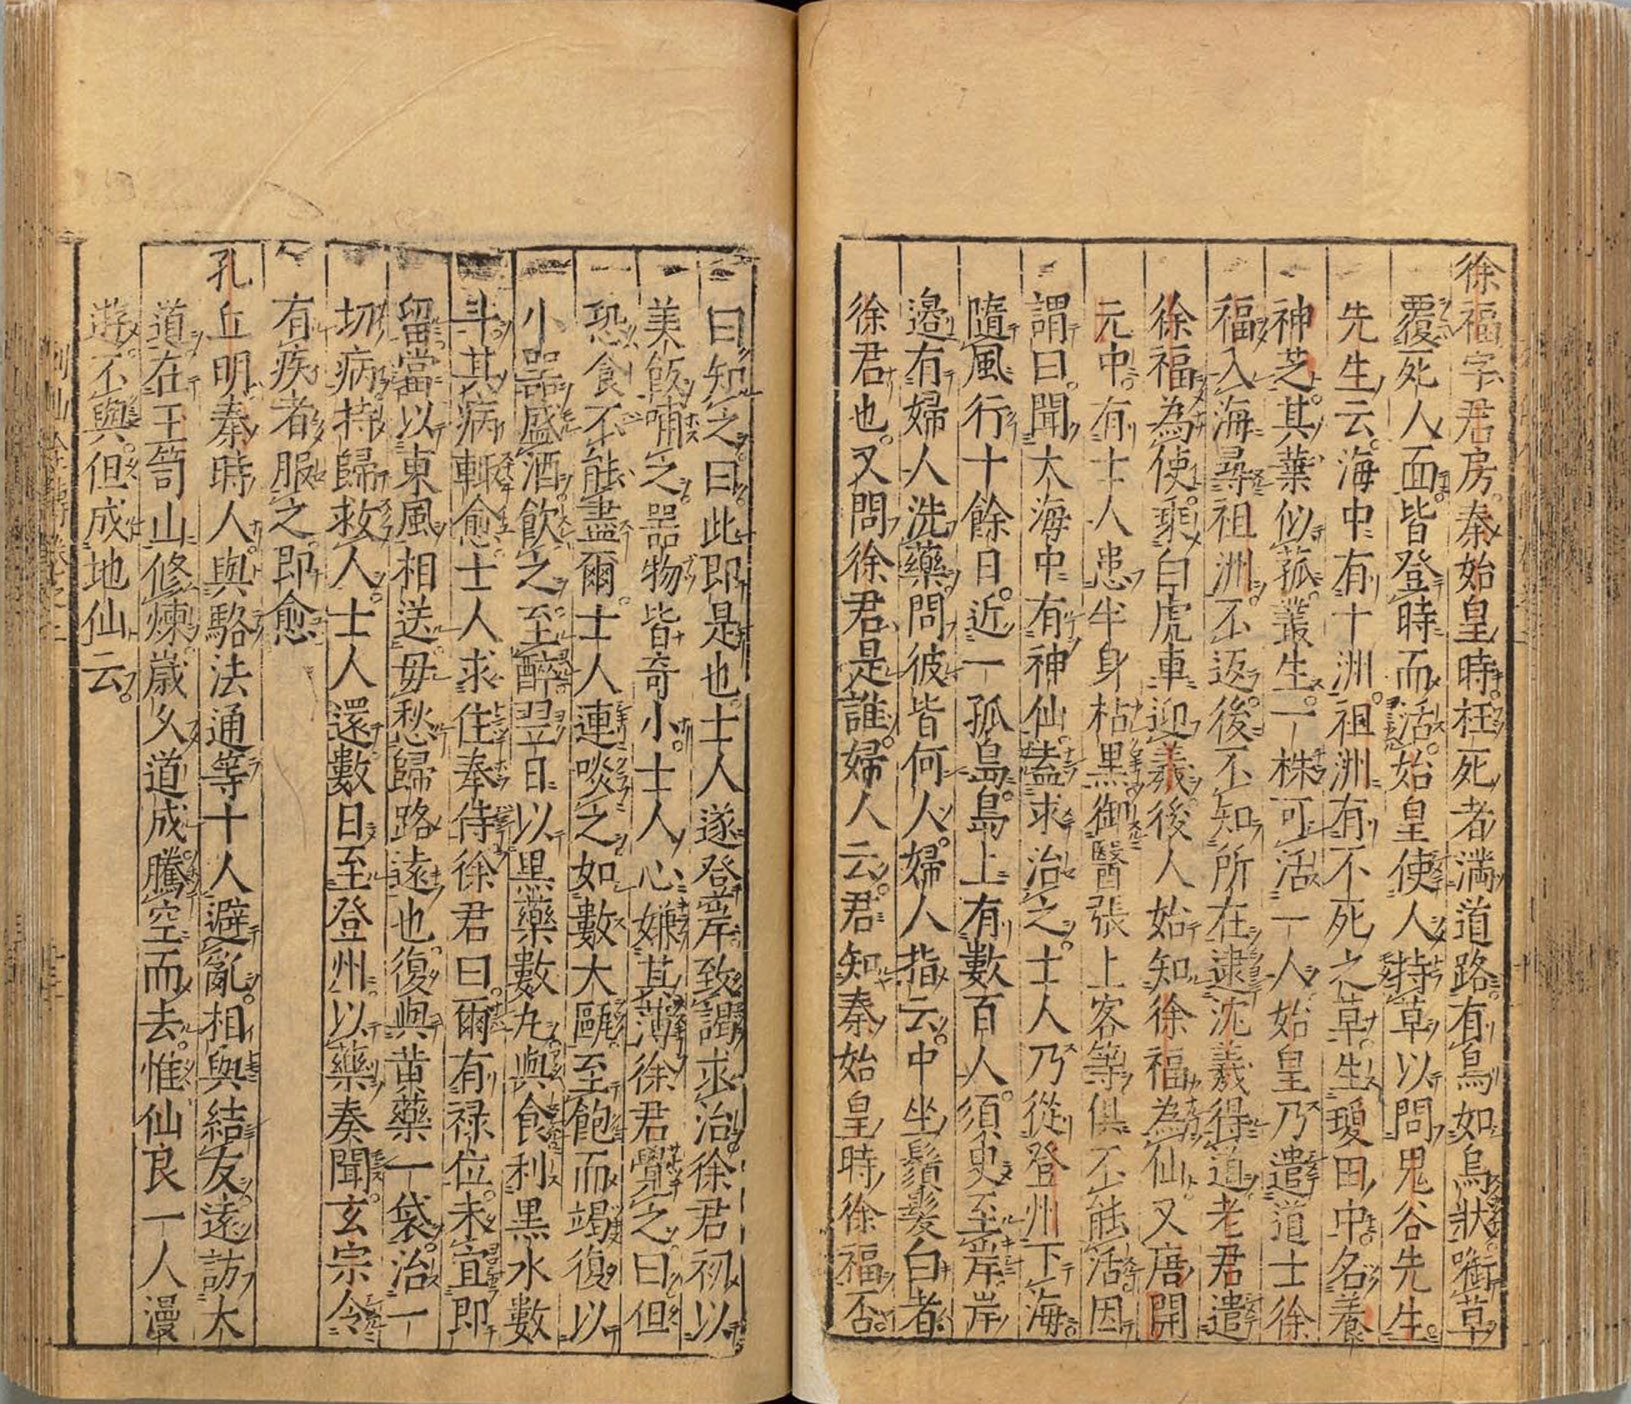 徐福字君房。秦始皇時。枉死者滿道路。有鳥如烏狀。啣草
覆死人面。皆登時而活。始皇使人持草以問鬼谷先生。
先生云。海中有十洲。祖洲有不死之草。生瓊田中。名養
神芝。其葉似菰。叢生。一株可活一人。始皇乃遣道士徐
福入海尋祖洲。不返。後不知所在。逮沈羲得道。老君遣
徐福為使。乘白虎車迎羲。後人始知徐福為仙。又唐開
元中。有士人患半身枯黑。御醫張上客等俱不能活。因
謂曰。聞大海中有神仙。盍求治之。士人乃從登州下海。
隨風行十餘日。近一孤島。島上有數百人。須臾至岸。岸
邉有婦人洗藥。問彼皆何人。婦人指云。中坐鬚髮白者。
徐君也。又問徐君是誰。婦人云。君知秦始皇時徐福否。
曰知之。曰。此即是也。士人遂登岸致謁求治。徐君初以
美飯哺之。器物皆奇小。士人心嫌其薄。徐君覺之。曰但
恐食不能盡爾。士人連啖之。如數大甌。至飽而竭。復以
小器盛酒飲之。至醉。翌日以黒藥數丸與食。利黒水數
斗。其病輙愈。士人求住奉侍。徐君曰。爾有禄位。未宜即
留。當以東風相送。毋愁歸路遠也。復與黄藥一袋。治一
切病。持歸救人。士人還數日。至登州。以藥奏聞。玄宗令
有疾者服之。即愈
孔丘明秦時人。與駱法通等十人避亂。相與結友。遠訪大
道。在玉笥山修煉。歳久道成。騰空而去。惟仙良一人漫
遊。不與。但成地仙云。
列仙全傳卷之二